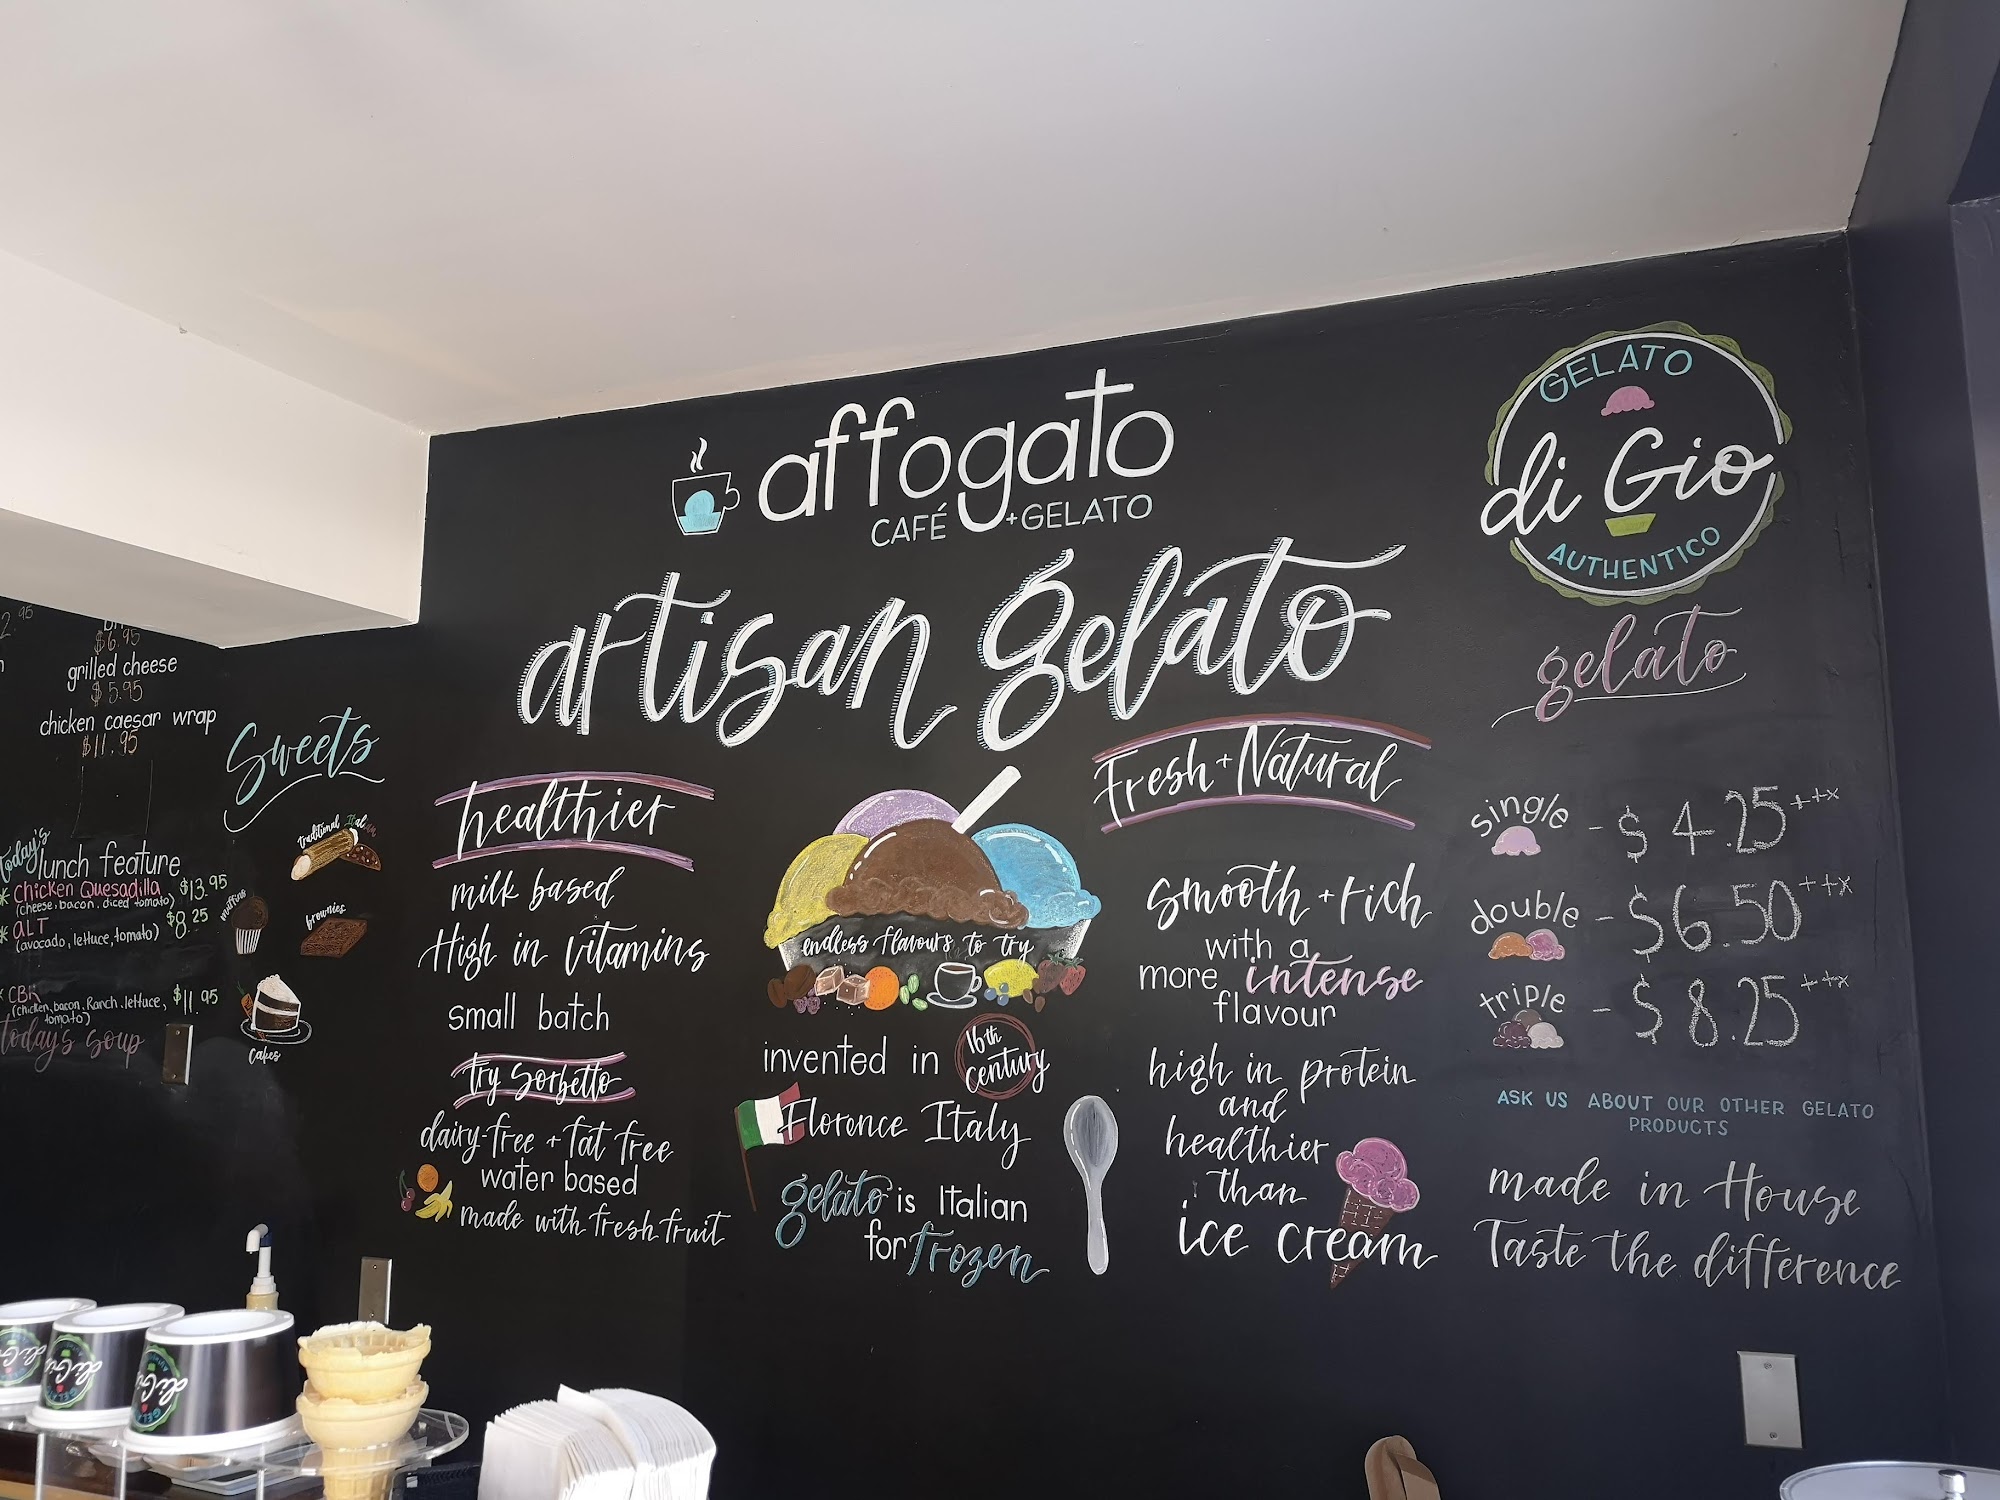 affogato
CAFÉ +GELATO
GELATO
di Gio
AUTHENTICO
artisan gelato
gelato
2.95
$6.95
grilled cheese
$5.95
chicken caesar wrap
$11.95
today's
lunch feature
* Chicken Quesadilla $13.95
(cheese, bacon, diced tomato)
* ALT $8.25
(avocado, lettuce, tomato)
* CBR $11.95
(chicken, bacon, Ranch, lettuce,
tomato)
today's soup
Sweets
traditional Italian
muffins
brownies
Cakes
healthier
milk based
High in vitamins
small batch
try Sorbetto
dairy-free + fat free
water based
made with fresh fruit
endless flavours to try
invented in 16th century
Florence Italy
gelato is Italian
for frozen
Fresh + Natural
smooth + rich
with a
more intense
flavour
high in protein
and
healthier
than
ice cream
single - $4.25++x
double - $6.50++x
triple - $8.25++x
ASK US ABOUT OUR OTHER GELATO
PRODUCTS
made in House
Taste the difference
di Gio
di Gio
di Gio